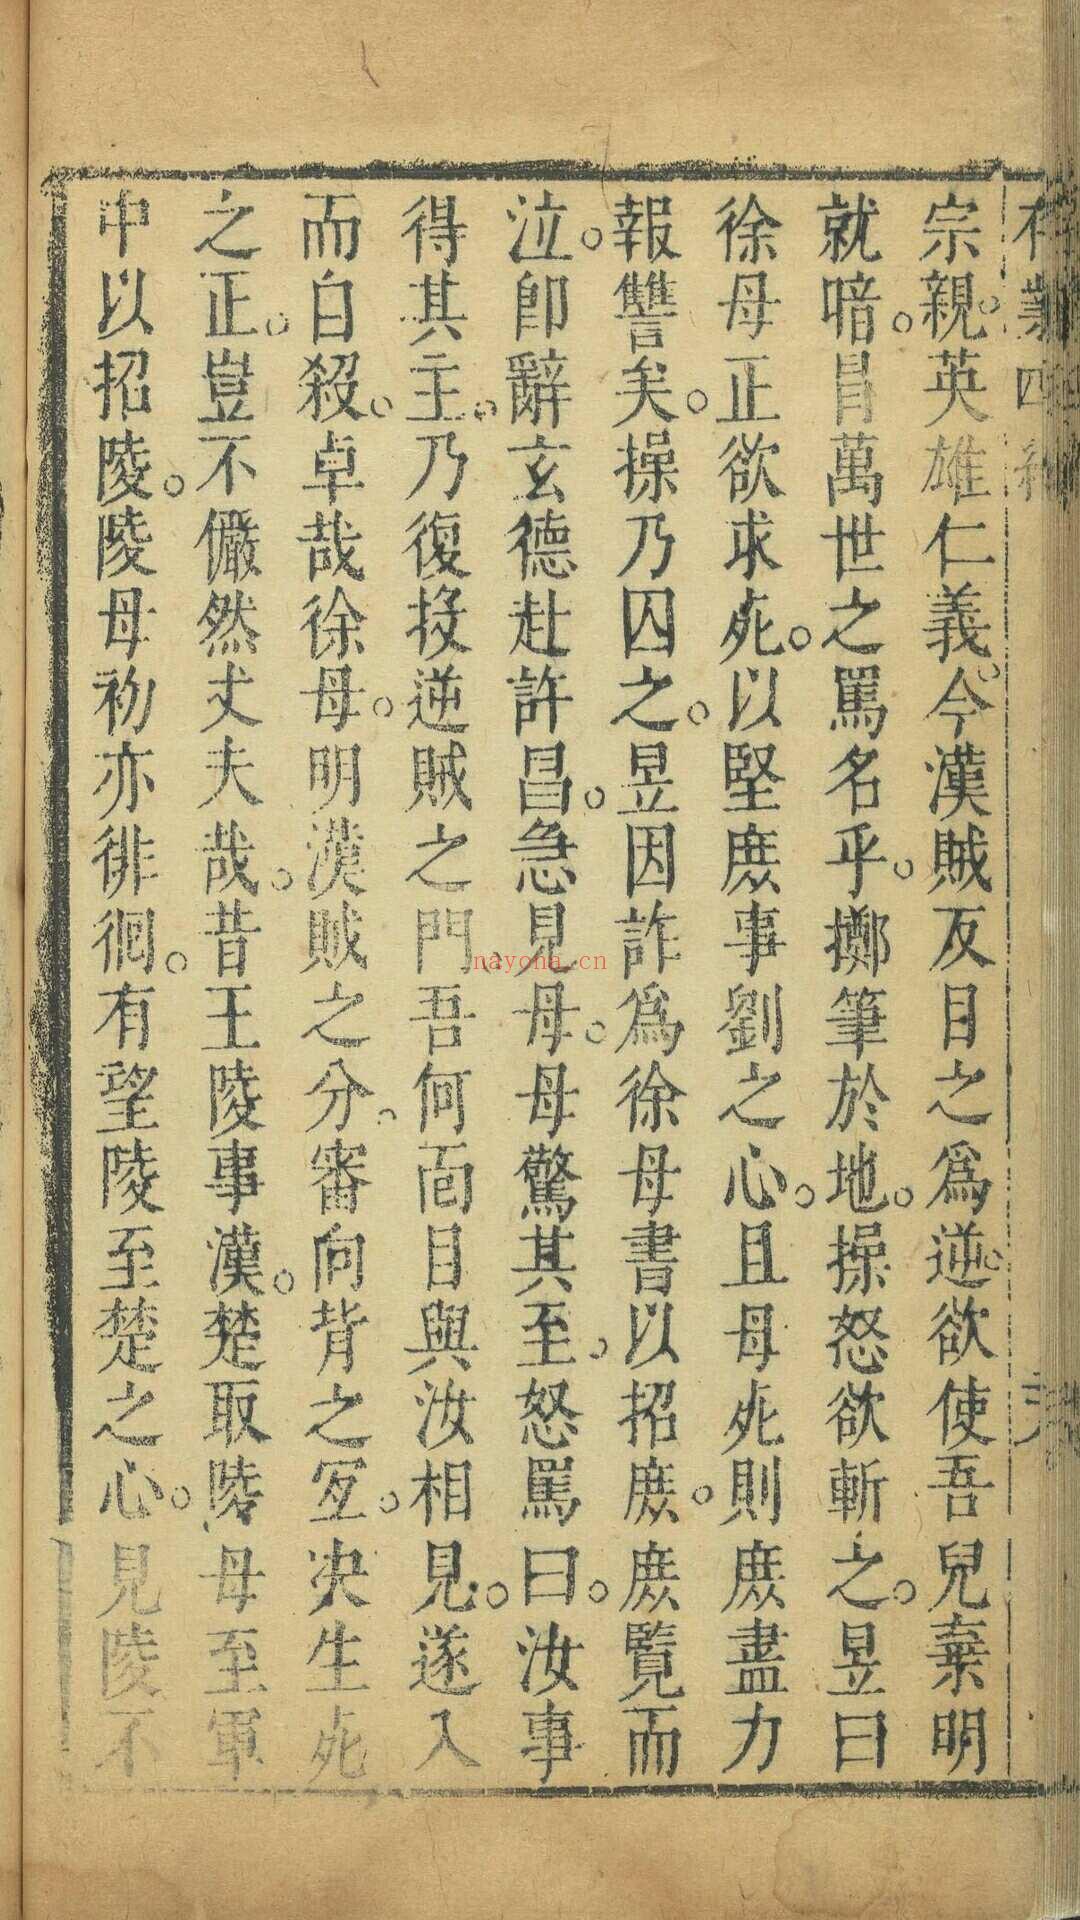 宗親。英雄仁義。今漢賊反目之爲逆。欲使吾兒棄明
就暗。冒萬世之罵名乎。擲筆於地。操怒欲斬之。昱曰
徐母正欲求死。以堅庶事劉之心。且母死則庶盡力
報讐矣。操乃囚之。昱因詐爲徐母書以招庶。庶覽而
泣。卽辭玄德赴許昌。急見母。母驚其至。怒罵曰。汝事
得其主。乃復投逆賊之門。吾何面目與汝相見。遂入
而自殺。卓哉徐母。明漢賊之分。審向背之宜。决生死
之正。豈不儼然丈夫哉。昔王陵事漢。楚取陵母至軍
中以招陵。陵母初亦徘徊。有望陵至楚之心。見陵不
nayona.cn